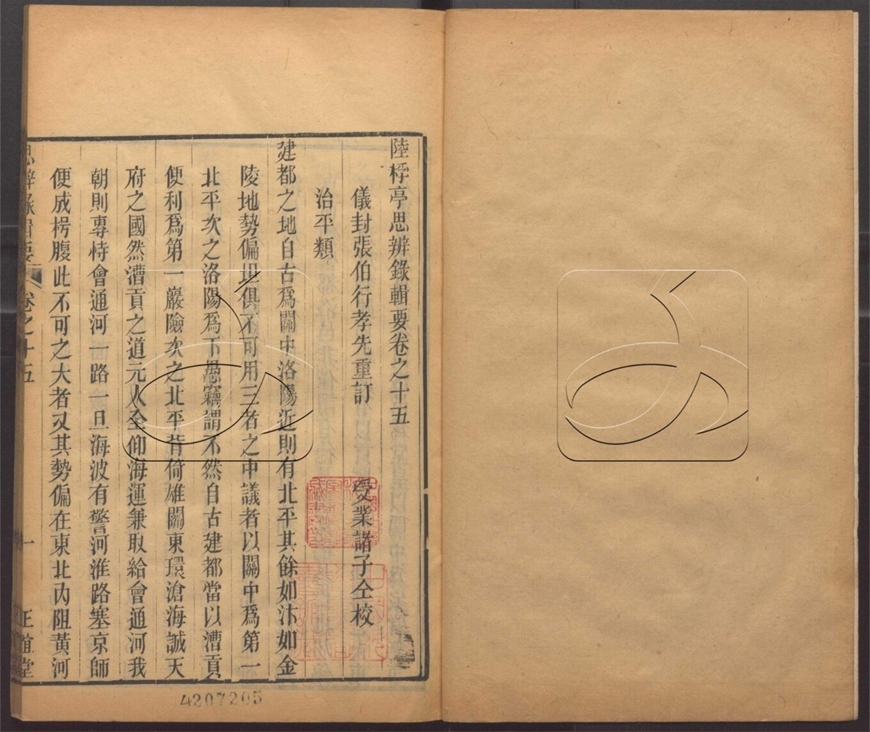 陸桴亭思辨錄輯要卷之十五
儀封張伯行孝先重訂 受業諸子仝校
治平類
建都之地自古爲關中洛陽近則有北平其餘如汴如金
陵地勢偏俱不可用三者之中議者以關中爲第一
北平次之洛陽爲下愚竊謂不然自古建都當以漕貢
便利爲第一巖險次之北平背倚雄關東環滄海誠天
府之國然漕貢之道元人全仰海運兼取給會通河我
朝則專恃會通河一路一旦海波有警河淮路塞京師
便成枵腹此不可之大者又其勢偏在東北內阻黃河
思辨錄輯要 卷之十五 一 正誼堂
4207205